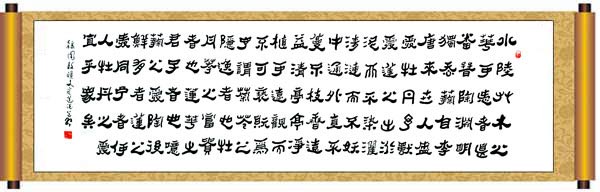 水陸艸木之
華可愛者甚
蕃晉陶淵明
獨愛菊自李
唐來世人盛
愛牡丹予獨
愛蓮之出淤
泥而不染濯
清漣而不妖
中通外直不
蔓不枝香遠
益清亭亭淨
植可遠觀而
不可褻玩焉
予謂菊華之
隱逸者也牡
丹華之富貴
者也蓮華之
君子者也噫
菊之愛陶後
鮮有聞蓮之
愛同予者何
人牡丹之愛
宜乎眾矣